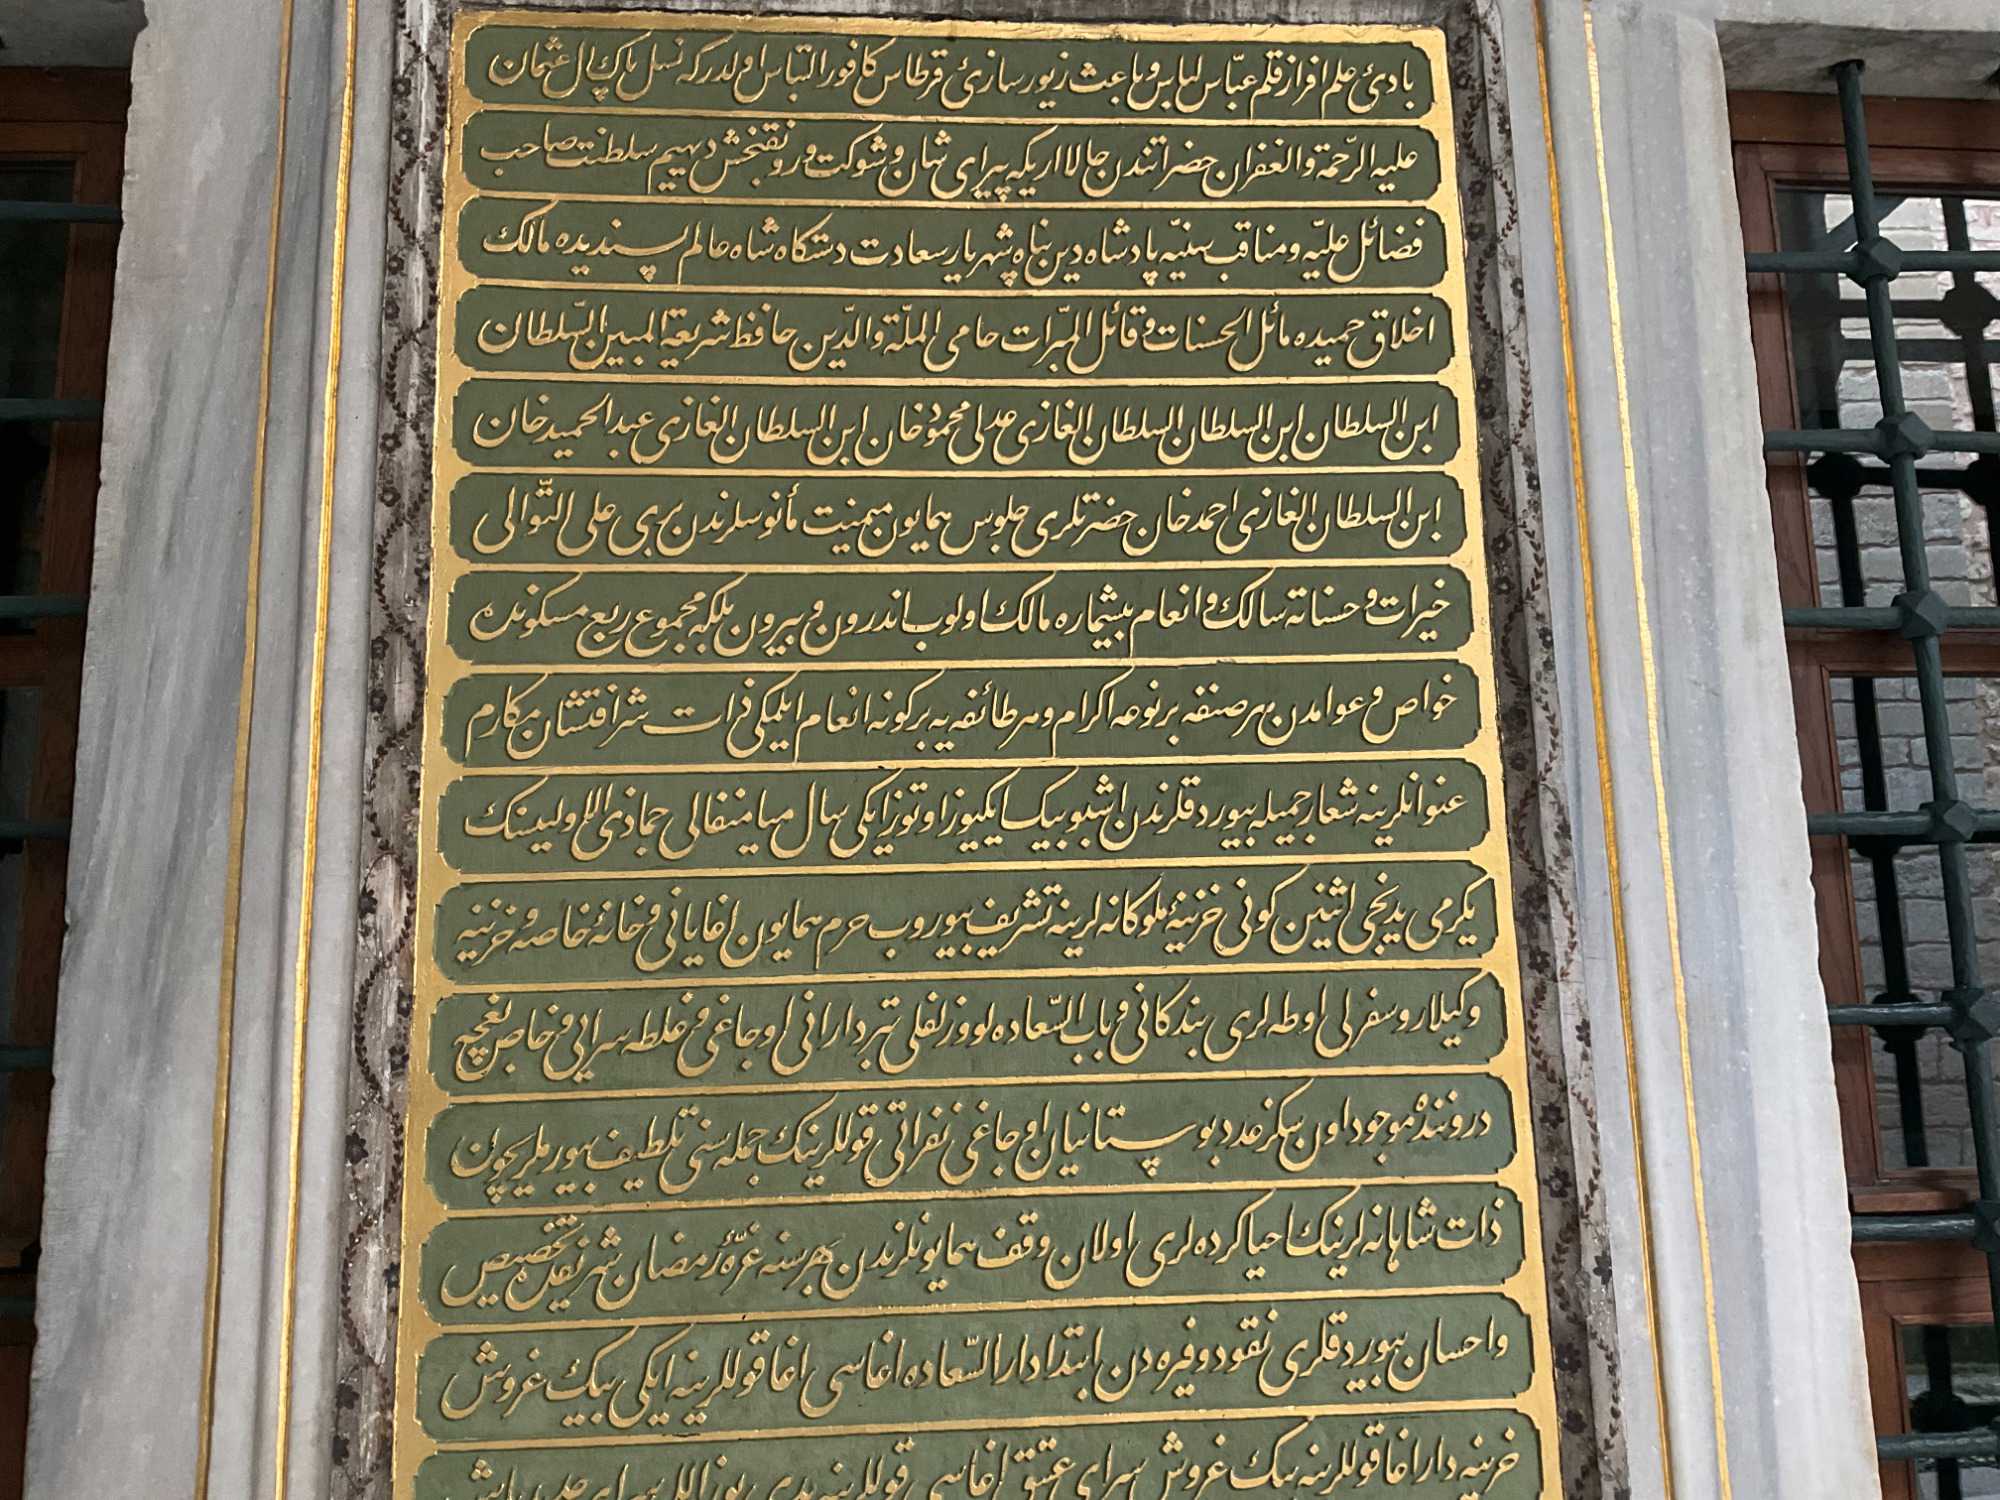 بادئ علم افراز قلم عبّاس لباس و باعث زیور سازئ قرطاس كافور التباس اولدركه نسل پاك آل عثمان
علیه الرّحمة والغفران حضراتندن حالا اریكه پیرای شان و شوكت و رونقبخش دیهیم سلطنت صاحب
فضائل علیّه و مناقب سنیّه پادشاه دین پناه شهریار سعادت دستكاه شاه عالم پسندیده مالك
اخلاق حمیده مائل الحسنات و قائل المبرّات حامی الملّة والدّین حافظ شریعة المبین السّلطان
ابن السلطان ابن السلطان السلطان الغازی عدلی محمود خان ابن السلطان الغازی عبد الحمید خان
ابن السلطان الغازی احمد خان حضرتلری جلوس همایون میمنت مأنوسلرندن بری علی التّوالی
خیرات و حسناتة سالك و انعام بیشماره مالك اولوب اندرون و بیرون بلكه مجموع ربع مسكونده
خواص و عوامدن هر صنفه بر نوعه اكرام و هر طائفه یه بر كونه انعام ایلمكی ذات شرافتشان مكارم
عنوانلرینه شعار جمیله بیوردقلرندن اشبو بیك ایكیوز اوتوز ایكی سال میامنفالی جمادی الاولیسنك
یكرمی یدنجی اثنین كونی خزینۀ ملوكانه لرینه تشریف بیوروب حرم همایون اغایانی و خانۀ خاصه و خزینه
و كیلار و سفرلی اوطه لری بندكانی و باب السّعاده لو و زلفلی تبردارانی اوجاغی و غلطه سرایی و خاص بغچه
دروننده موجود اون سكز عدد بوستانیان اوجاغی نفراتی قوللرینك جمله سنی تلطیف بیورملریچون
ذات شاهانه لرینك احیا كرده لری اولان وقف همایونلرندن هر سنه غرّۀ رمضان شریفده تخصیص
و احسان بیوردقلری نقود وفیره دن ابتدا دار السّعاده اغاسی اغا قوللرینه ایكی بیك غروش
خزینه دار اغا قوللرینه بیك غروش سرای عتیق اغاسی قوللرینه یدی یوز اللی